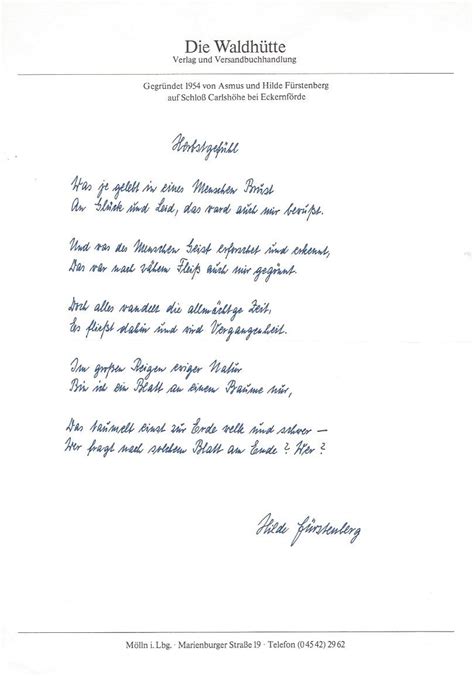 Die Waldhütte
Verlag und Versandbuchhandlung
Gegründet 1954 von Asmus und Hilde Fürstenberg
auf Schloß Carlshöhe bei Eckernförde
Herbstgefühl
Was je gelebt in eines Menschen Brust
An Glück und Leid, das ward auch mir bewußt.
Und was des Menschen Geist erforschet und erkennt,
Das war nach zähem Fleiß auch mir gegönnt.
Doch alles wandelt die allmächtge Zeit,
Es fließt dahin und wird Vergangenheit.
Im großen Reigen ewiger Natur
Bin ich ein Blatt an einem Baume nur,
Das taumelt einst zur Erde welk und schwer –
Wer fragt nach solchem Blatt am Ende? Wer?
Hilde Fürstenberg
Mölln i. Lbg. · Marienburger Straße 19 · Telefon (0 45 42) 29 62